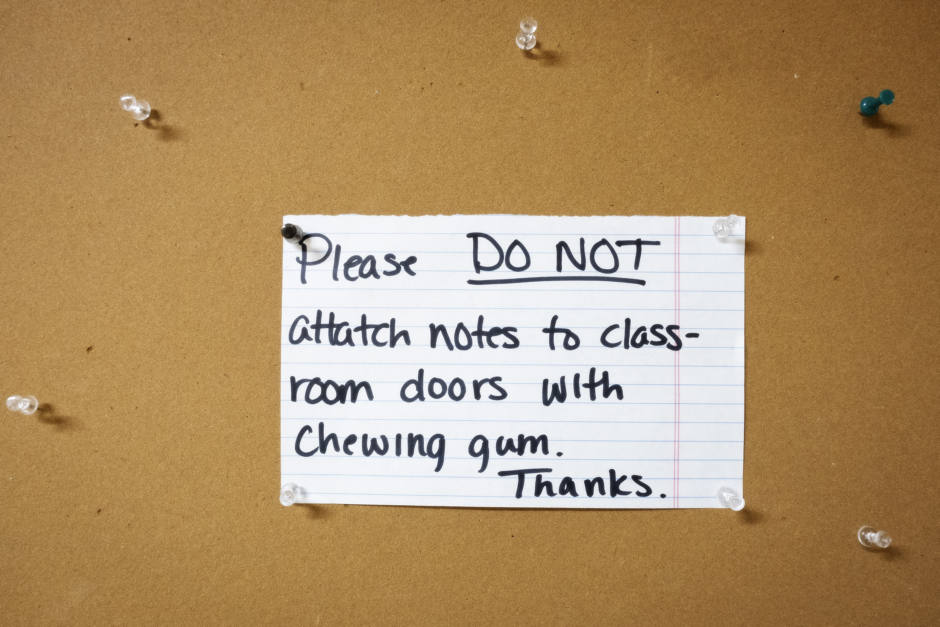 Please DO NOT
attatch notes to class-
room doors with
Chewing gum.
Thanks.